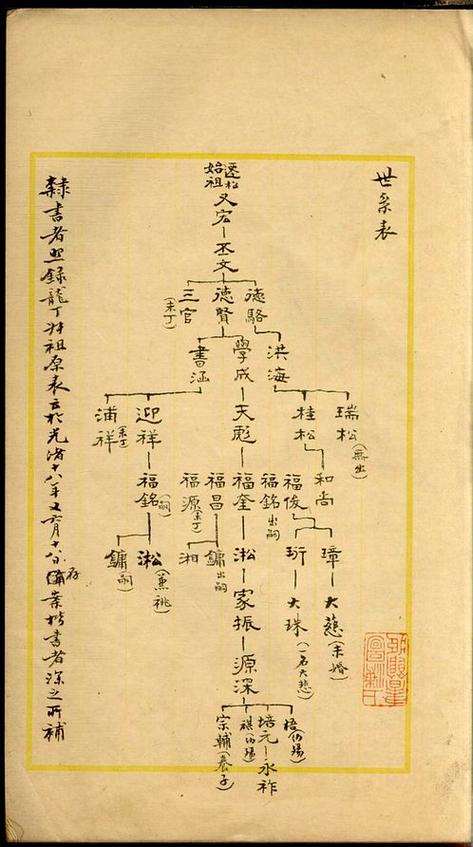 世系表
遷松
始祖
又宏
丞文
德駱
德賢
三官
(未丁)
洪海
學成
書涵
瑞松
(無出)
桂松
天彪
迎祥
浦祥
(未丁)
和尚
福俊
福銘
出嗣
福奎
福昌
福源
(未丁)
福銘
(嗣)
璋
珩
淞
鏞
出嗣
湘
淞
(兼祧)
鏞
(嗣)
大慈
(未婚)
大珠
(一名大悲)
家振
源深
培元
永祚
宗輔
(養子)
隸書者照錄龍丁叔祖原表立於光緒十八年又六月十八日
存
備案楷書者深之所補